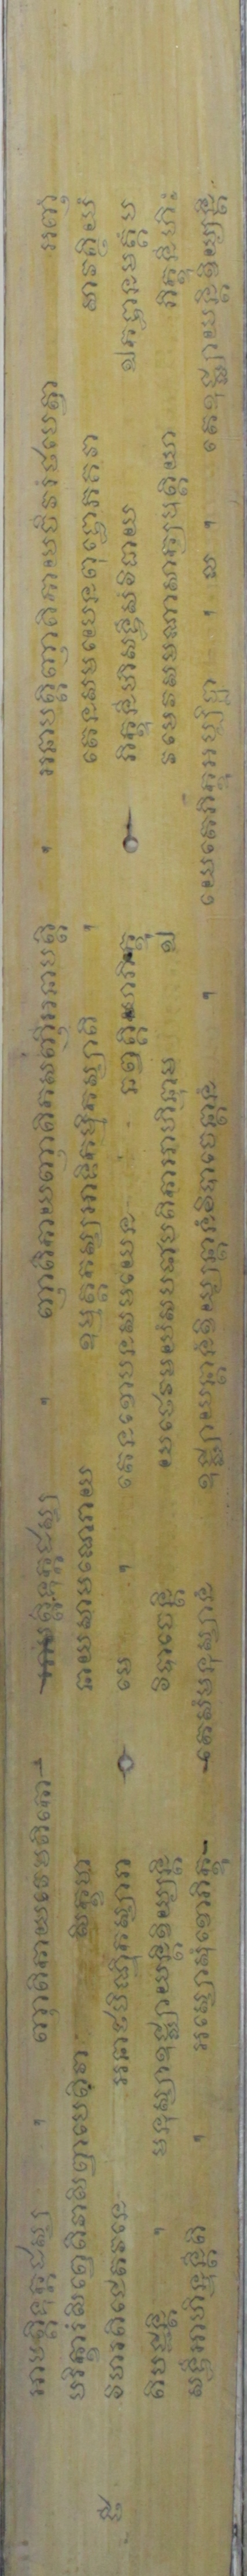 អាបត្តិទុក្កដស្ស ។ ញាតិកាយវេមតិកោ អាបត្តិទុក្កដស្ស ។ ញាតិកាយញាតិកសញ្ញីអនាបត្តិ ។ អនាបត្តិញាតិកាយចីវរំ ឋបេត្វា អញ្ញំ
បរិក្ខារំសិព្វេតិវាសិព្វាបេតិវា សិក្ខមា នាយសាមណេរាយ ឧម្មត្តកស្សអាទិកម្មិកស្សាតិ ។ តេនសមយេនពុទ្ធោភគវា សាវត្ថិយំ
វិហរតិជេតវនេ អនាថបិណ្ឌិកស្សារា មេ ។ តេនខោបនសមយេន ឆព្វគ្គិយាភិក្ខូ ភិក្ខុនីហិសទ្ធឹសំវិធាយ ឯកទ្ធានមគ្គំប
ដិបជ្ជន្តិ ។ មនុស្សាឧជ្ឈាយន្តិខិយ្យន្តិ វិបាចេន្តិ យថេវមយំសបជាបតិកាអាហិណ្ឌាម ឯ វមេវសមណាសាក្យបុត្តិយា ភិក្ខុនីហិ
សទ្ធឹអាហិណ្ឌន្តីតិ ។ អស្សោសុំខោភិក្ខូ តេសំមនុស្សានំ ឧជ្ឈាយន្តានំខិយ្យន្តានំវិបាចេន្តានំ ។ យេតេភិក្ខូអប្បិច្ឆា ។ ល ។ តេឧជ្ឈាយន្តិខិយ្យន្តិ